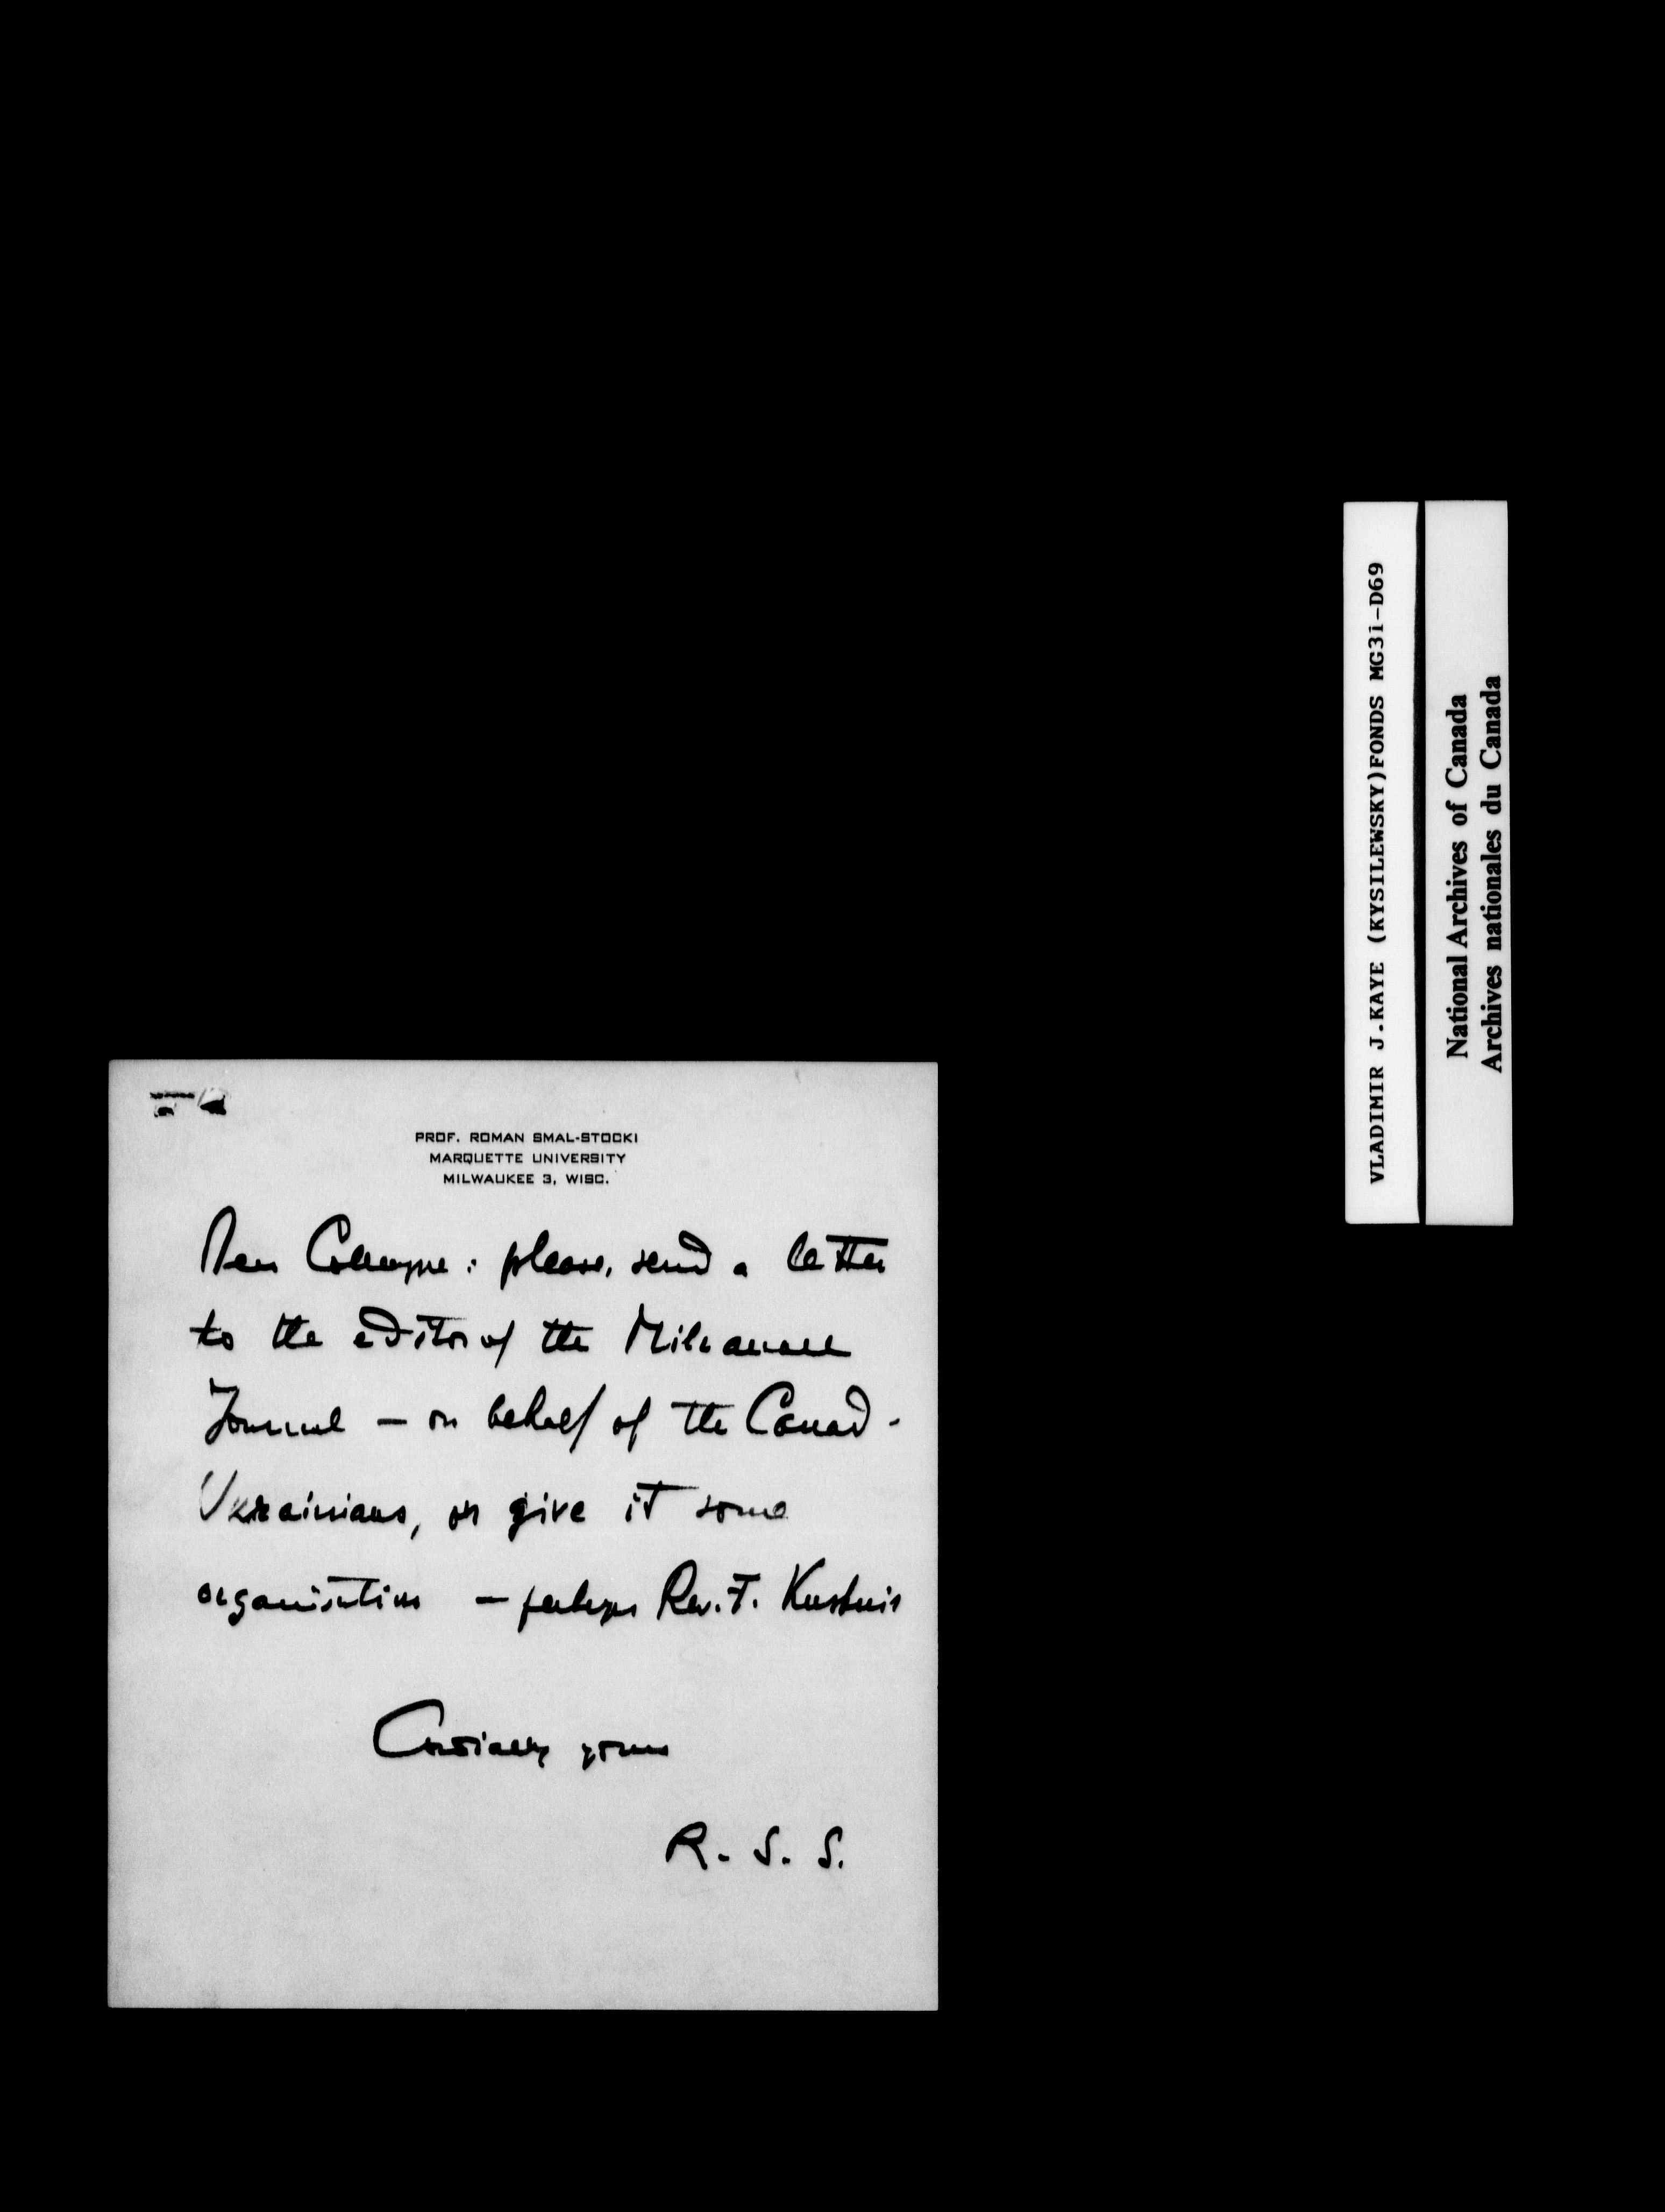 PROF. ROMAN SMAL-STOCKI
MARQUETTE UNIVERSITY
MILWAUKEE 3, WISC.
Dear Colleague: please, send a letter
to the editor of the Milwaukee
Journal — on behalf of the Canad-
Ukrainians, or give it some
organisation — perhaps Rev. F.
Cordially yours
R. S. S.
VLADIMIR J.KAYE (KYSILEWSKY)FONDS MG31-D69
National Archives of Canada
Archives nationales du Canada